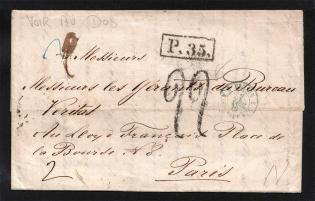 VOIR 1 SU DOS
P. 35.
Messieurs
Messieurs les Gérants du Bureau
Veritas
Au Lloyd Français Place de
la Bourse N° 8
Paris
2